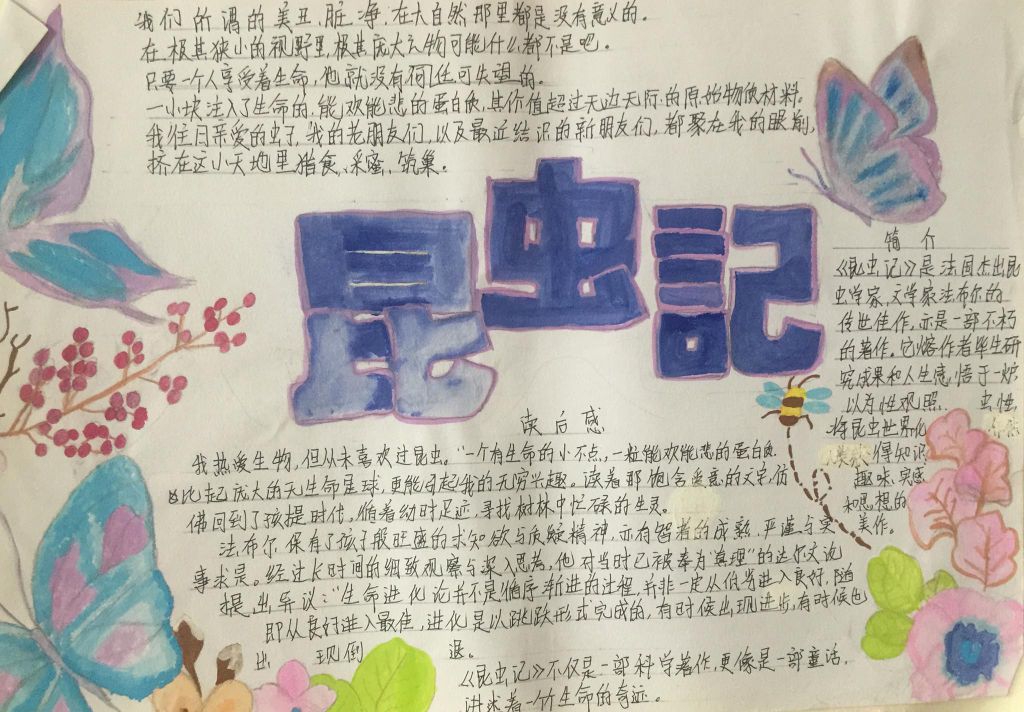 我们所谓的美丑、脏净,在大自然那里都是没有意义的。
在极其狭小的视野里,极其庞大之物可能什么都不是吧。
只要一个人享受着生命,他就没有何任可失望的。
一小块注入了生命的,能欢能悲的蛋白质,其价值超过无边无际的原始物质材料。
我往日亲爱的虫子,我的老朋友们,以及最近结识的新朋友们,都聚在我的眼前,
挤在这小天地里猎食、采蜜、筑巢。
昆虫記
简介
《昆虫记》是法国杰出昆
虫学家,文学家法布尔的
传世佳作,亦是一部不朽
的著作。它熔作者毕生研
究成果和人生感悟于一炉
以人性观照 虫性
将昆虫世界化
得知识
趣味,美感
和思想的
美作。
读后感
我热爱生物,但从未喜欢过昆虫。"一个有生命的小不点,一粒能欢能悲的蛋白质
比起庞大的无生命星球,更能引起我的无穷兴趣。读着那饱含爱意的文字,仿
佛回到了孩提时代,循着幼时足迹,寻找树林中忙碌的生灵。
法布尔保有了孩子般旺盛的求知欲与质疑精神,亦有智者的成熟、严谨与实
事求是。经过长时间的细致观察与深入思考,他对当时已被奉为"真理"的达尔文论
提出异议:"生命进化论并不是循序渐进的过程,并非一定从低劣进入良好,随
即从良好进入最佳,进化是以跳跃形式完成的,有时候出现进步,有时候也
出现倒退。
《昆虫记》不仅是一部科学著作,更像是一部童话,
讲述着一个生命的奇迹。